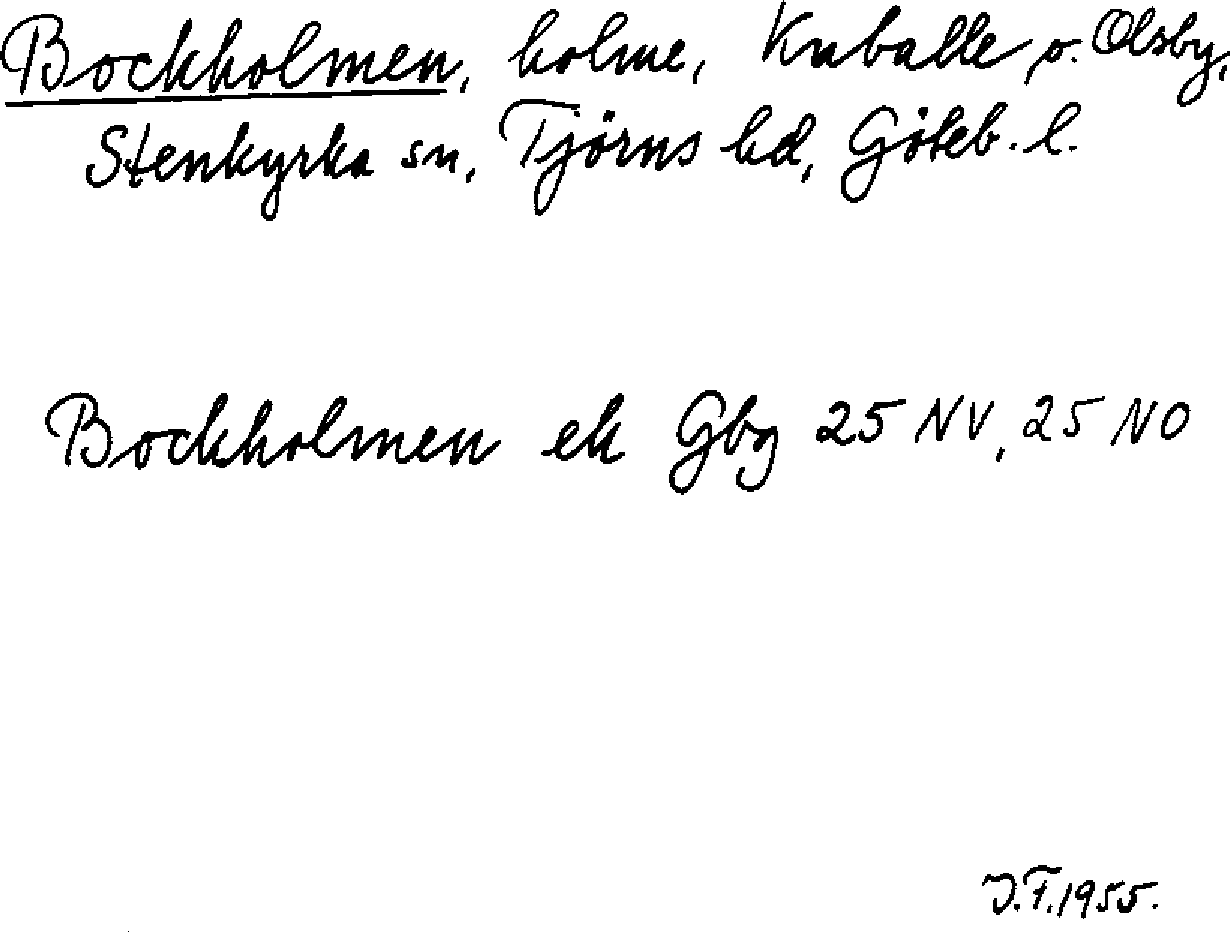 Bockholmen, holme, Kuballe o. Olsby,
Stenkyrka sn, Tjörns hd, Göteb. l.
Bockholmen ek Gbg 25 NV, 25 NO
J.F. 1955.